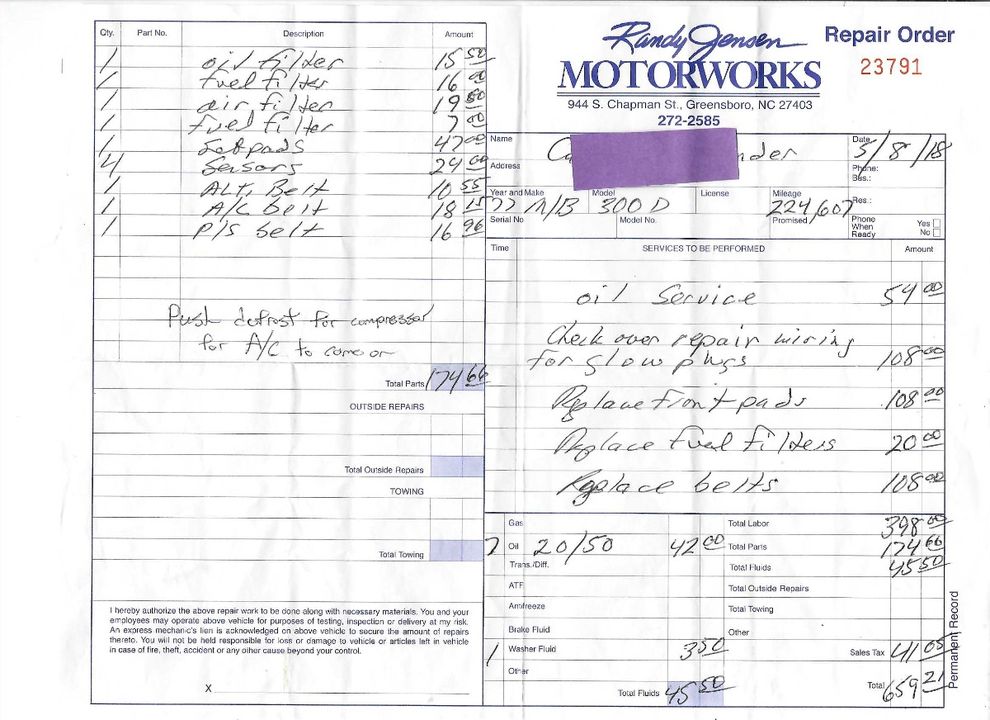 Qty. Part No. Description Amount
1 oil filter 15 50
1 fuel filter 16 00
1 air filter 19 50
1 fuel filter 7 00
1 set pads 47 00
4 Sensors 24 00
1 ALT. Belt 10 55
1 A/C belt 18 15
1 P/S belt 16 96
Push defrost for compressor
for A/C to come on
Total Parts 174 66
OUTSIDE REPAIRS
Total Outside Repairs
TOWING
Total Towing
I hereby authorize the above repair work to be done along with necessary materials. You and your
employees may operate above vehicle for purposes of testing, inspection or delivery at my risk.
An express mechanic's lien is acknowledged on above vehicle to secure the amount of repairs
thereto. You will not be held responsible for loss or damage to vehicle or articles left in vehicle
in case of fire, theft, accident or any other cause beyond your control.
X
Randy Jensen
MOTORWORKS
944 S. Chapman St., Greensboro, NC 27403
272-2585
Repair Order
23791
Name nder
Date 5/8/18
Address
Phone:
Bus.:
Year and Make 77 M/B Model 300 D License Mileage 224,607 Res.:
Serial No Model No. Promised Phone When Ready Yes No
Time SERVICES TO BE PERFORMED Amount
oil Service 54 00
Check over repair wiring
for glow plugs 108 00
Replace front pads 108 00
Replace fuel filters 20 00
Replace belts 108 00
Gas
7 Oil 20/50 42 00
Trans./Diff.
ATF
Antifreeze
Brake Fluid
1 Washer Fluid 3 50
Other
Total Fluids 45 50
Total Labor 398 00
Total Parts 174 66
Total Fluids 45 50
Total Outside Repairs
Total Towing
Other
Sales Tax 41 05
Total 659 21
Permanent Record